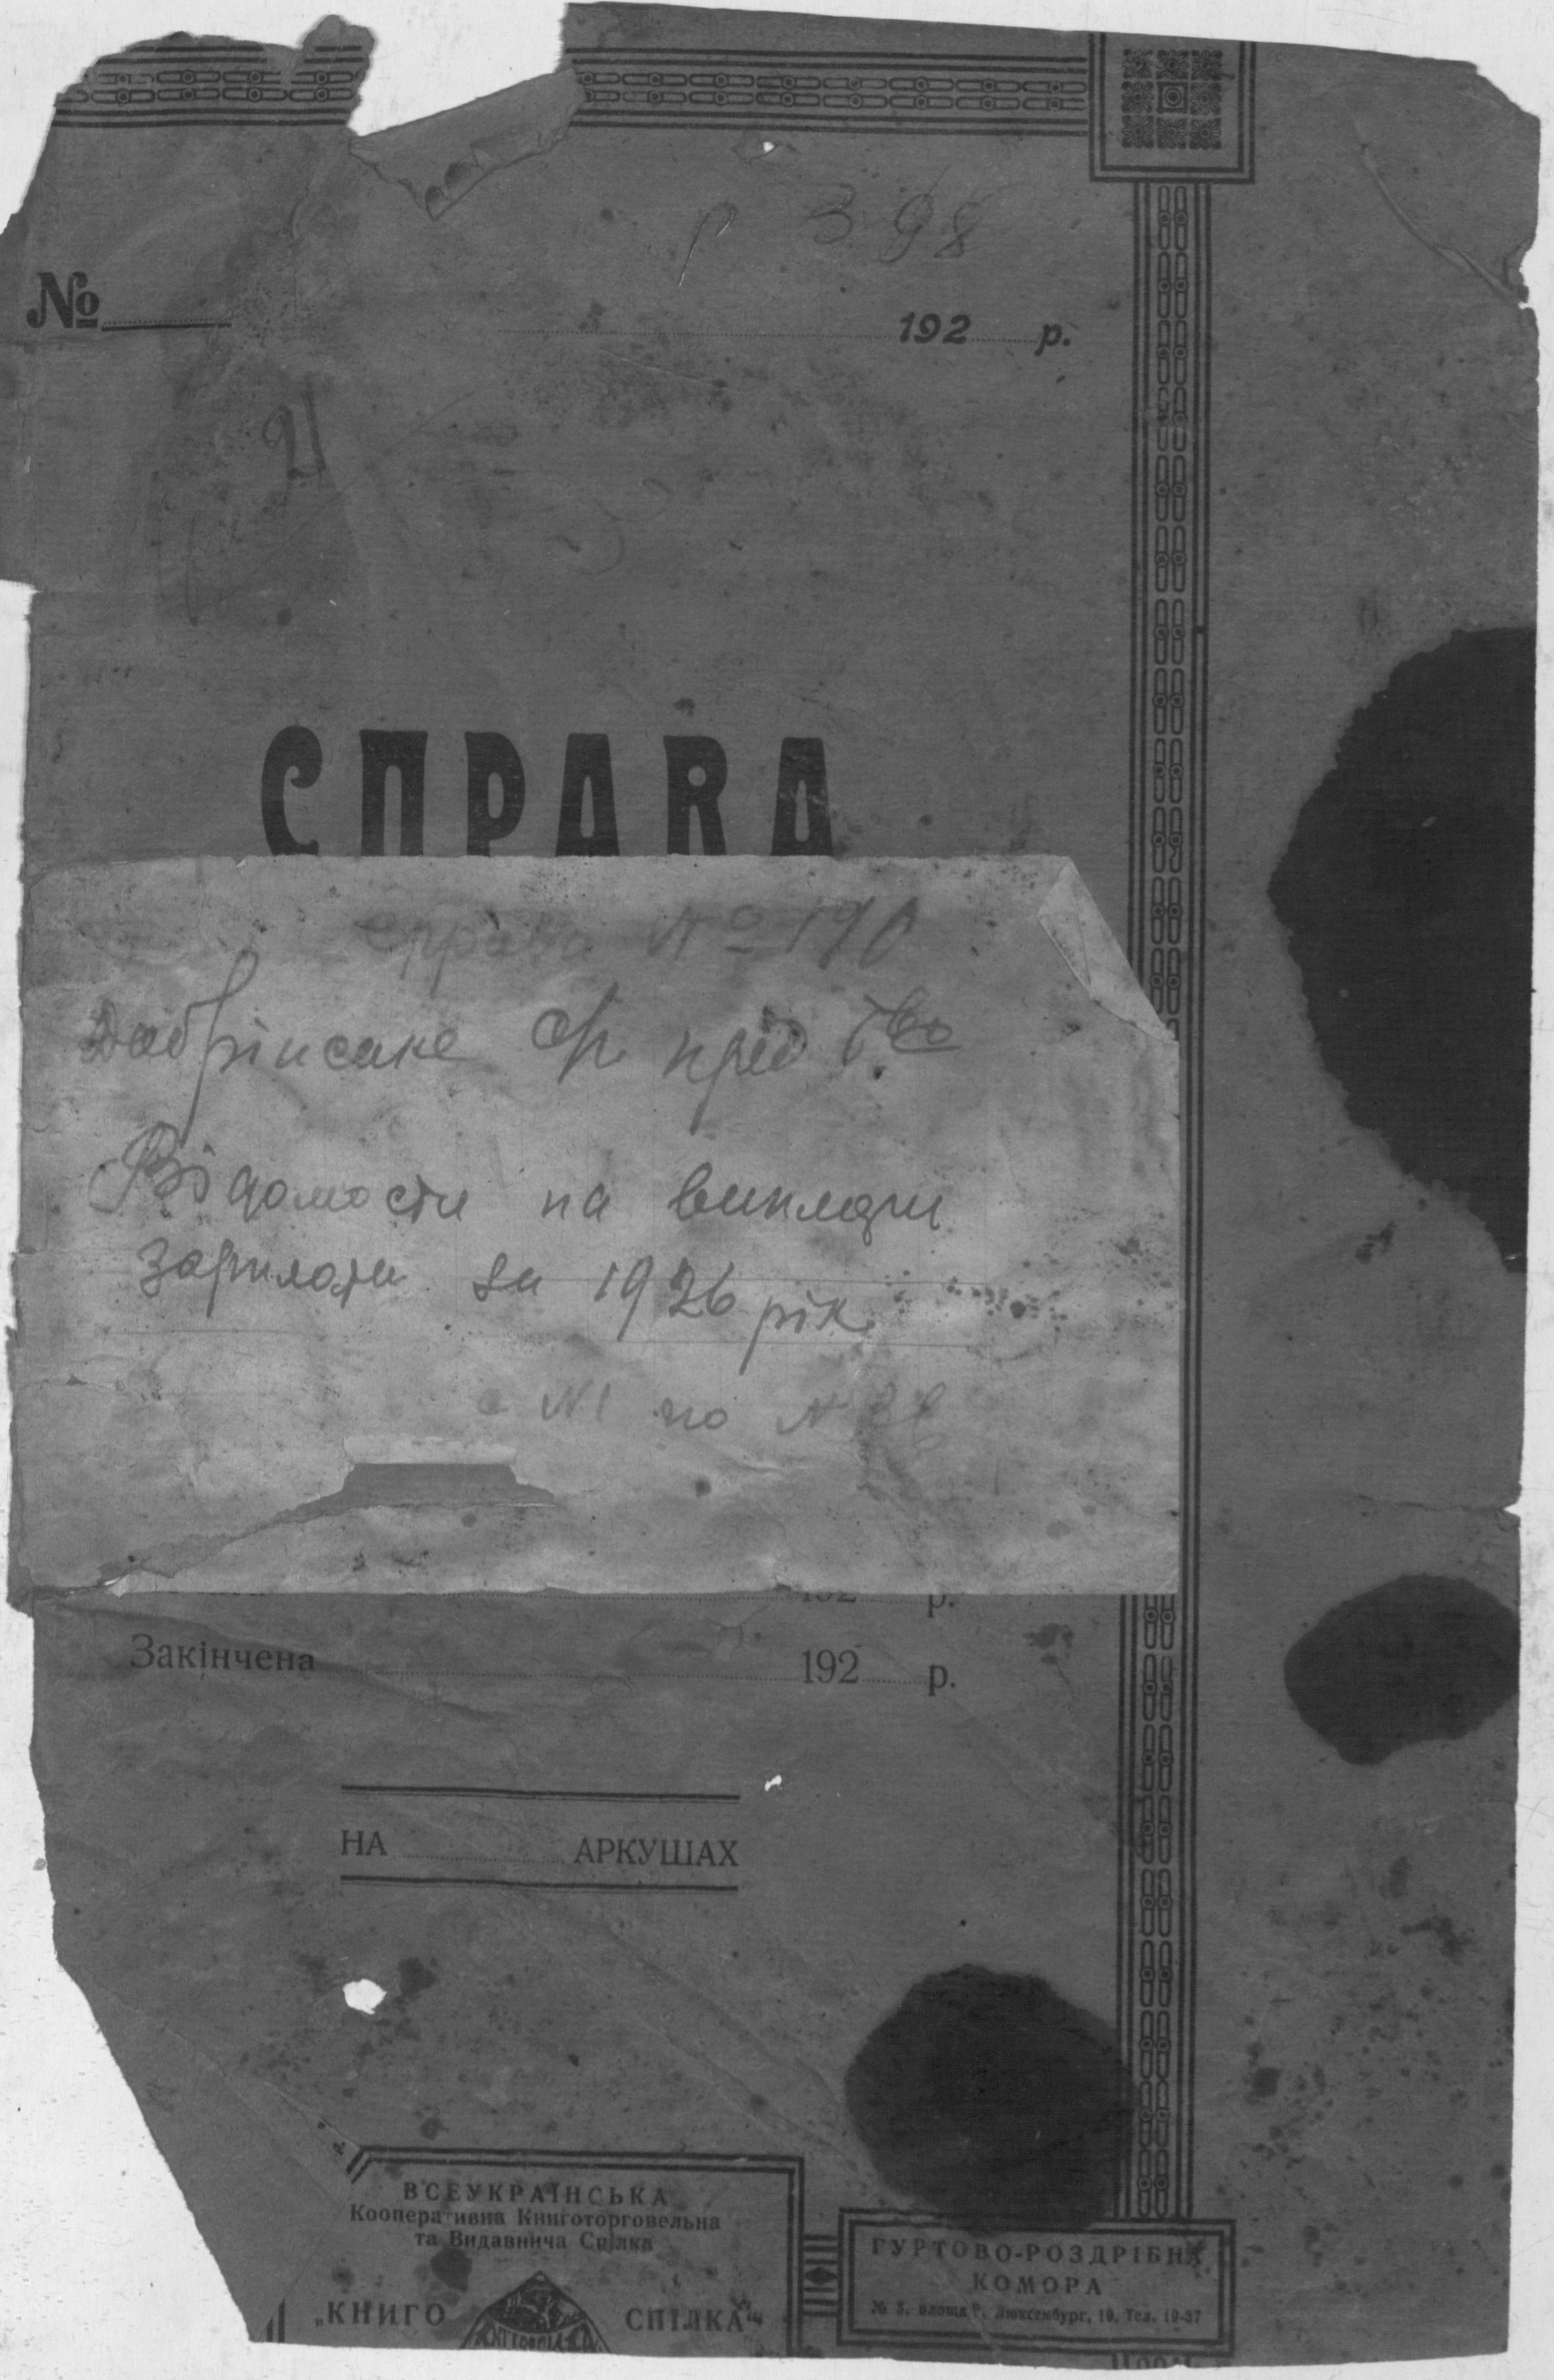 Р 398
№
192 р.
21
СПРАВА
Справа № 190
Добрінське кр. кред. Т-во
Відомости на виплати
зарплати за 1926 рік
с № 1 по №
192 р.
Закінчена 192 р.
НА АРКУШАХ
ВСЕУКРАЇНСЬКА
Кооперативна Книготорговельна
та Видавнича Спілка
„КНИГО СПІЛКА"
ГУРТОВО-РОЗДРІБНА
КОМОРА
№ 3, площа Р. Люксембург, 10, Тел. 19-37